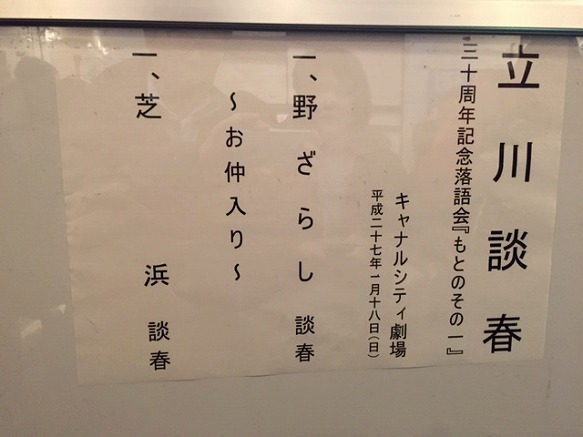 立川談春
三十周年記念落語会『もとのその一』
キャナルシティ劇場
平成二十七年一月十八日(日)
一、野ざらし 談春
～お仲入り～
一、芝 浜 談春